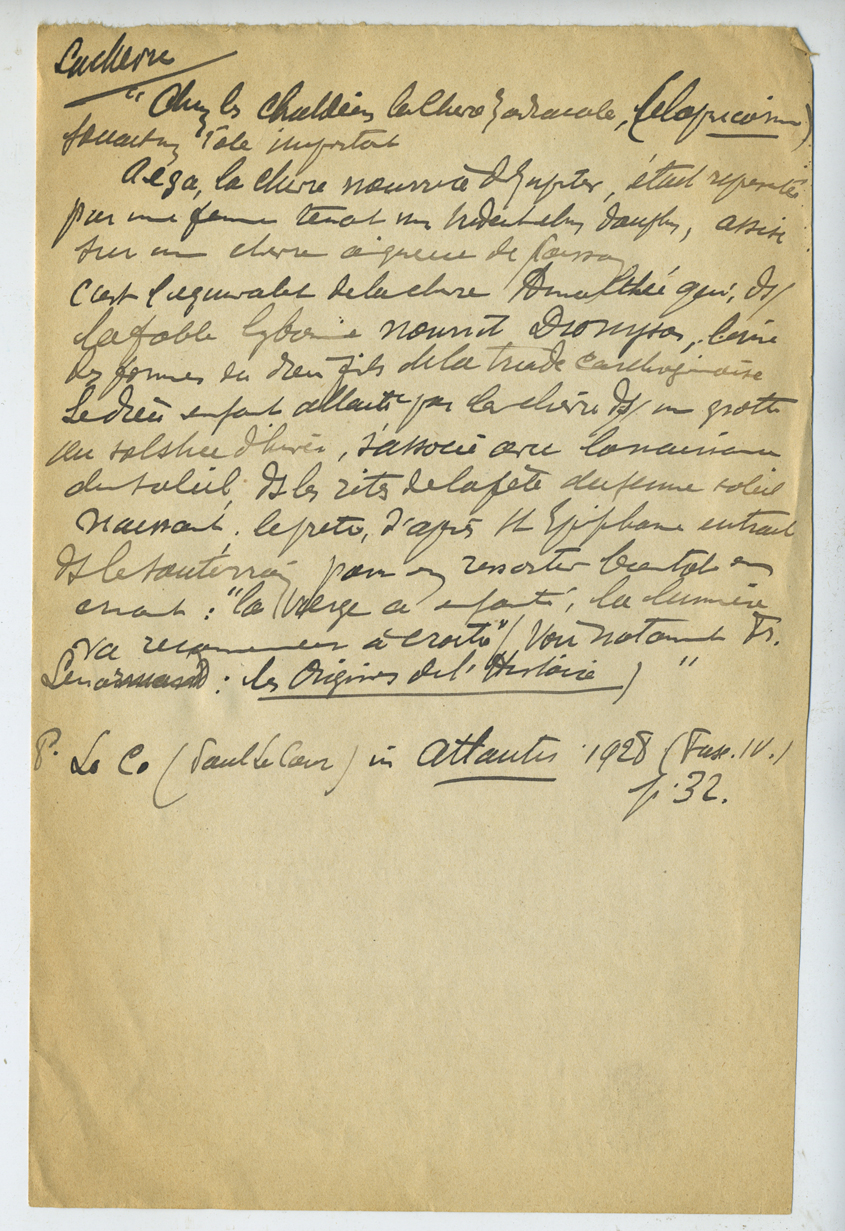 La chèvre
"Chez les chaldéens la chèvre zodiacale, (le capricorne)
jouait un rôle important
Aega, la chèvre nourrice de Jupiter, était représentée
par une femme tenant un trident et un dauphin, assise
sur une chèvre à queue de poisson
C'est l'équivalent de la chèvre Amalthée qui, ds/
la fable Lybienne nourrit Dionysos, l'une
des formes du dieu fils de la triade carthaginoise
Le dieu enfant allaité par la chèvre ds/ une grotte
au solstice d'hiver, s'associe avec la naissance
du soleil, ds les rites de la fête du jeune soleil
naissant, le prêtre, d'après St Epiphane entrait
ds le souterrain pour en ressortir bientôt en
criant : "la Vierge a enfanté, la lumière
va recommencer à croître" (Voir notamment Fr.
Lenormand : les Origines de l'Histoire) "
P. Le Co (Paul Le Cour) in Atlantis 1928 (Fasc. IV.)
p. 32.